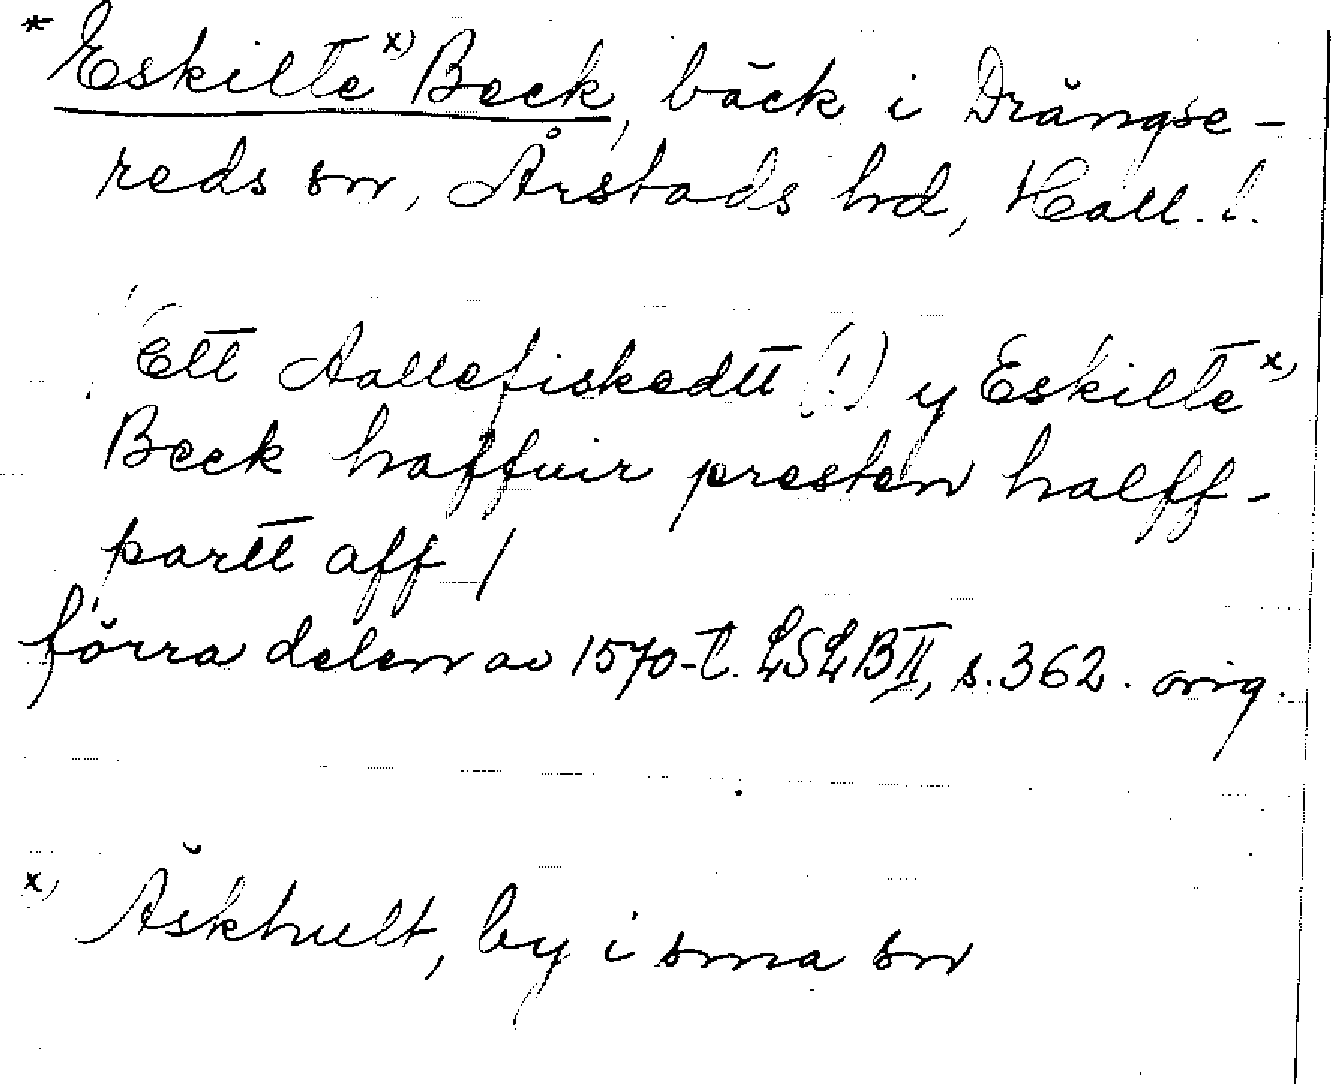 * Eskilte x) Beck, bäck i Drängse-
reds sn, Årstads hd, Hall. l.
Ett Aallefiskedtt (!) y Eskilte x)
Beck haffuir presten halff-
partt aff /
förra delen av 1570-t. LSLB II, s. 362. orig.
x) Äskhult, by i sma sn